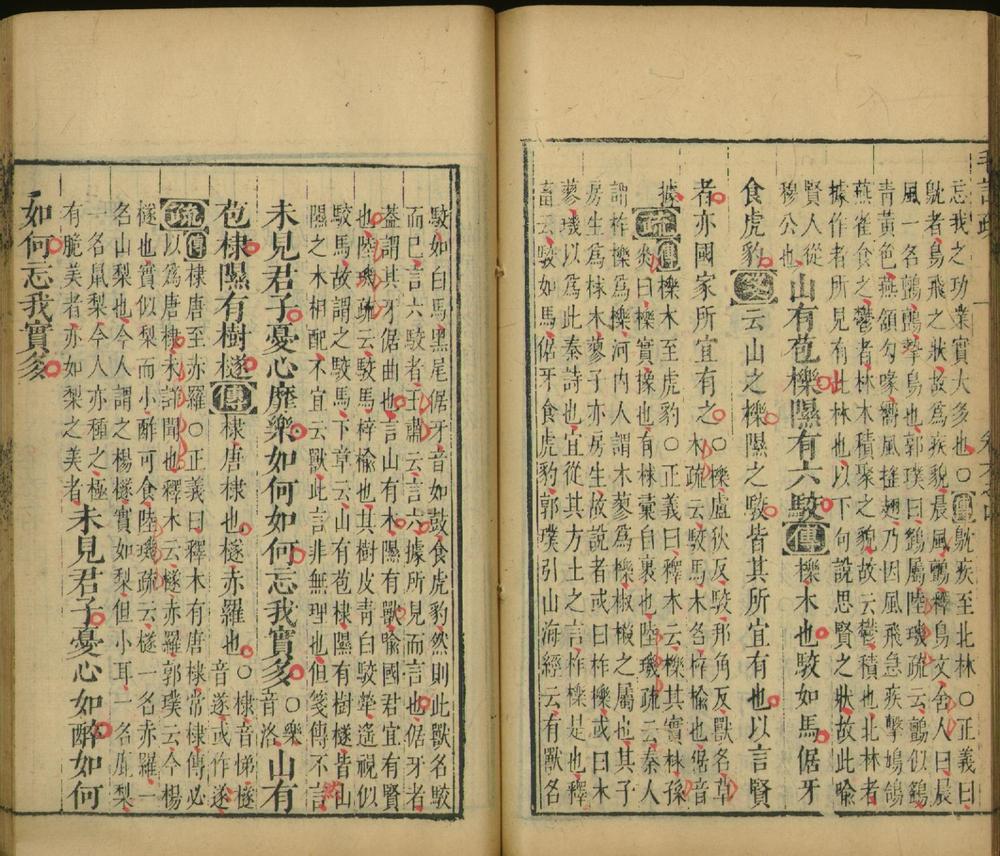 毛詩疏
忘我之功業實大多也○傳鴥疾至北林○正義曰
鴥者鳥飛之狀故爲疾貌晨風鸇釋鳥文舍人曰晨
風一名鸇鸇摯鳥也郭璞曰鷂屬陸璣疏云鸇似鷂
青黃色燕頷勾喙嚮風搖翅乃因風飛急疾擊鳩鴿
燕雀食之鬱者林木積聚之貌故云鬱積也北林者
據作者所見有此林也以下句說思賢之狀故此喻
賢人從
穆公也
山有苞櫟隰有六駮傳櫟木也駮如馬倨牙
食虎豹箋云山之櫟隰之駮皆其所宜有也以言賢
者亦國家所宜有之
○櫟盧狄反駮邦角反獸名草
木疏云駮馬木名梓榆也倨音
據
疏
傳櫟木至虎豹○正義曰釋木云櫟其實梂孫
炎曰櫟實橡也有梂彙自裹也陸璣疏云秦人
謂柞櫟爲櫟河內人謂木蓼爲櫟椒榝之屬也其子
房生爲梂木蓼子亦房生故說者或曰柞櫟或曰木
蓼璣以爲此秦詩也宜從其方土之言柞櫟是也釋
畜云駮如馬倨牙食虎豹郭璞引山海經云有獸名
駮如白馬黑尾倨牙音如鼓食虎豹然則此獸名駮
而已言六駮者王肅云言六據所見而言也倨牙者
蓋謂其牙倨曲也言山有木隰有獸喻國君宜有賢
也陸璣疏云駮馬梓榆也其樹皮青白駮犖遙視似
駮馬故謂之駮馬下章云山有苞棣隰有樹檖皆山
隰之木相配不宜云獸此言非無理也但箋傳不言
未見君子憂心靡樂如何如何忘我實多
○樂
音洛
山有
苞棣隰有樹檖傳棣唐棣也檖赤羅也
○棣音悌檖
音遂或作遂
疏
傳棣唐至赤羅○正義曰釋木有唐棣常棣傳必
以爲唐棣未詳聞也釋木云檖赤羅郭璞云今楊
檖也實似梨而小酢可食陸璣疏云檖一名赤羅一
名山梨也今人謂之楊檖實如梨但小耳一名鹿梨
一名鼠梨今人亦種之極
有脆美者亦如梨之美者
未見君子憂心如醉如何
如何忘我實多